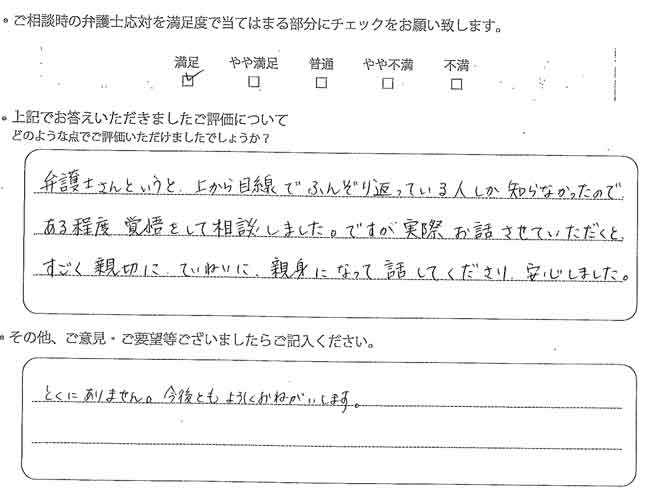 • ご相談時の弁護士応対を満足度で当てはまる部分にチェックをお願い致します。
満足 やや満足 普通 やや不満 不満
• 上記でお答えいただきましたご評価について
どのような点でご評価いただけましたでしょうか？
弁護士さんというと、上から目線でふんぞり返っている人しか知らなかったので
ある程度覚悟をして相談しました。ですが実際お話させていただくと
すごく親切に、ていねいに、親身になって話してくださり、安心しました。
• その他、ご意見・ご要望等ございましたらご記入ください。
とくにありません。今後ともよろしくおねがいします。